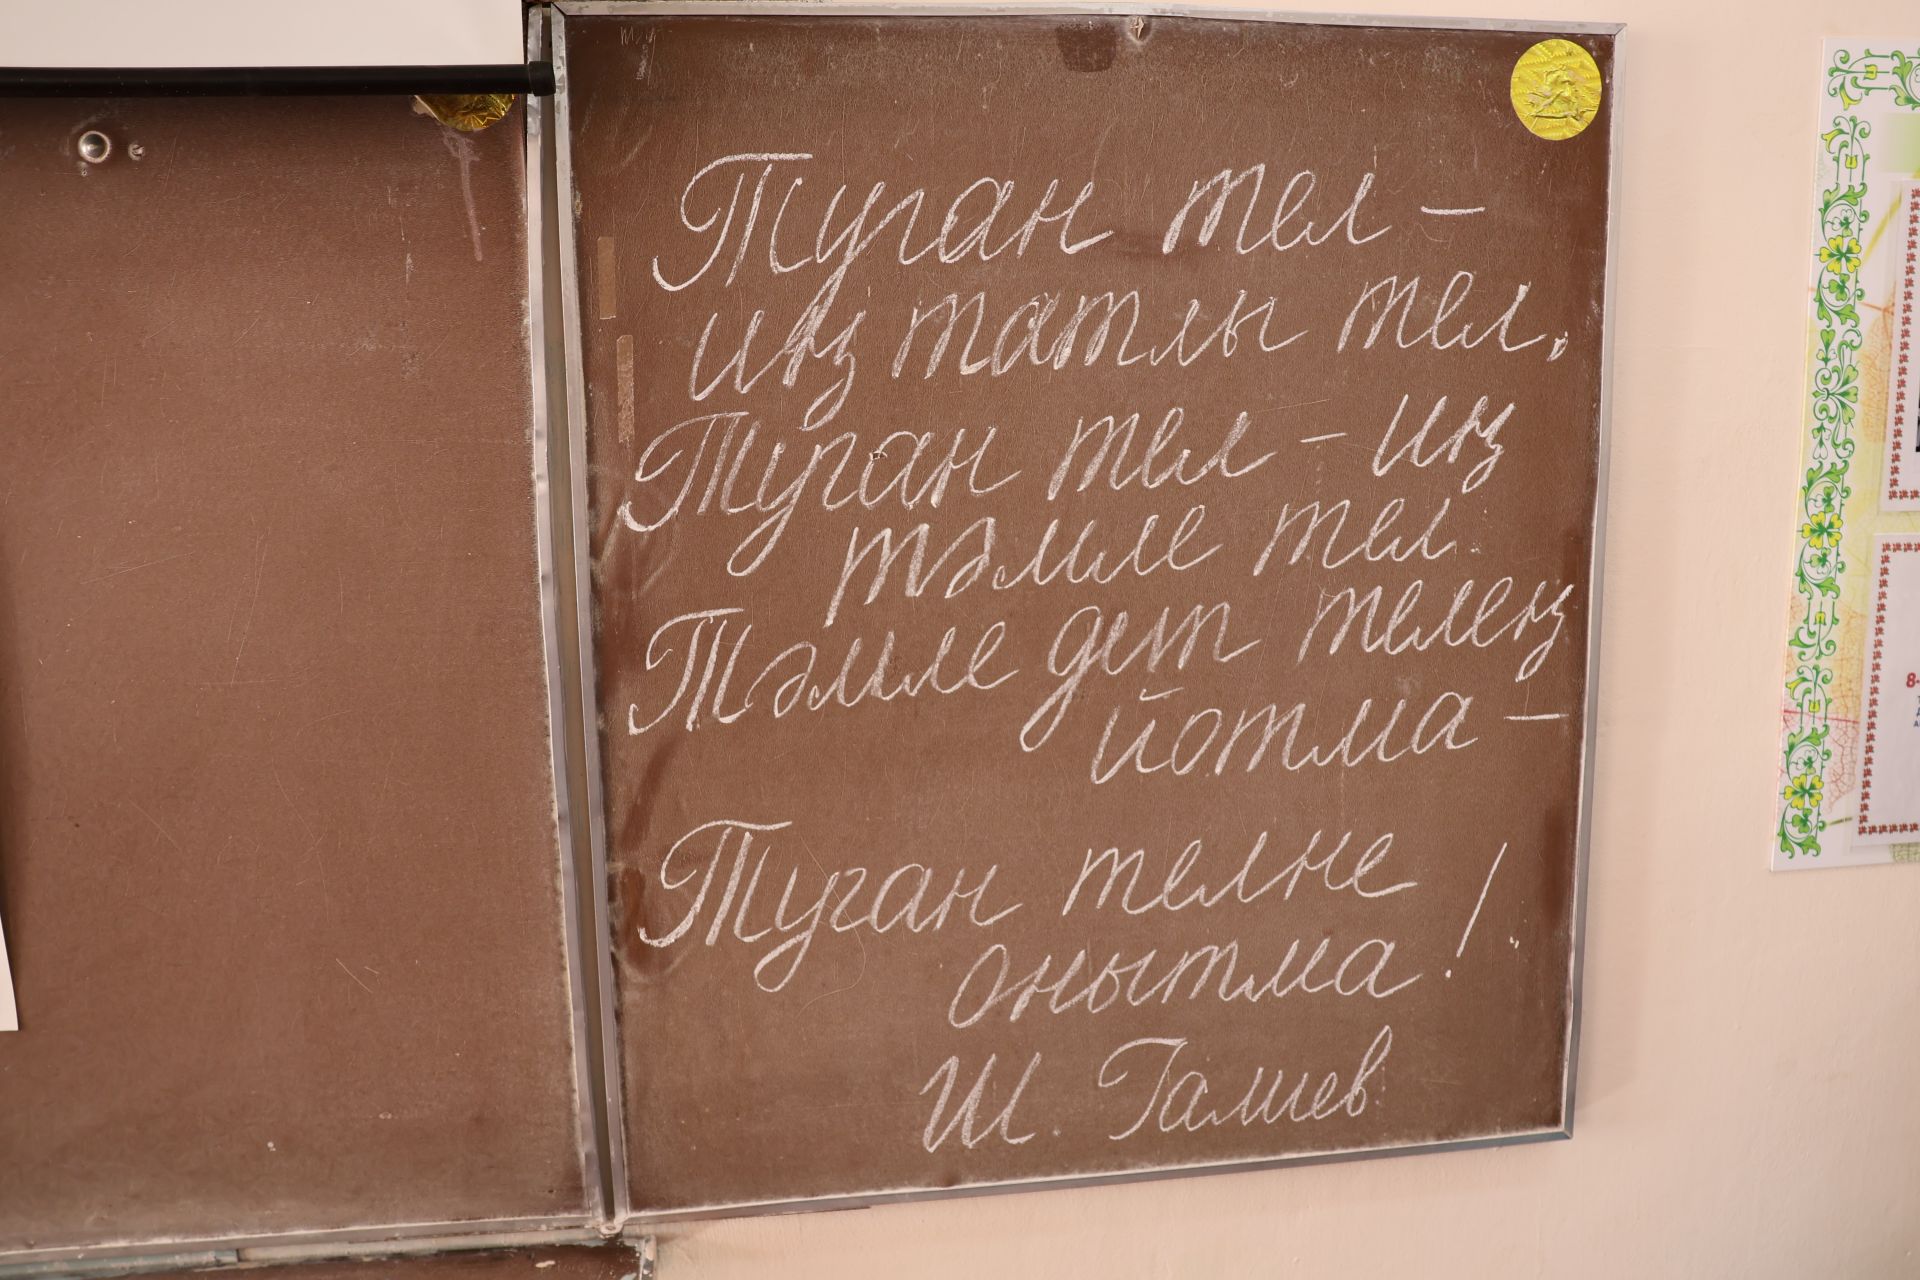 Туган тел –
иң татлы тел,
Туган тел – иң
тәмле тел.
Тәмле дип телең
йотма –
Туган телне
онытма!
Ш. Галиев
8-